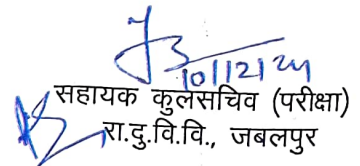 10/12/24
सहायक कुलसचिव (परीक्षा)
रा.दु.वि.वि., जबलपुर